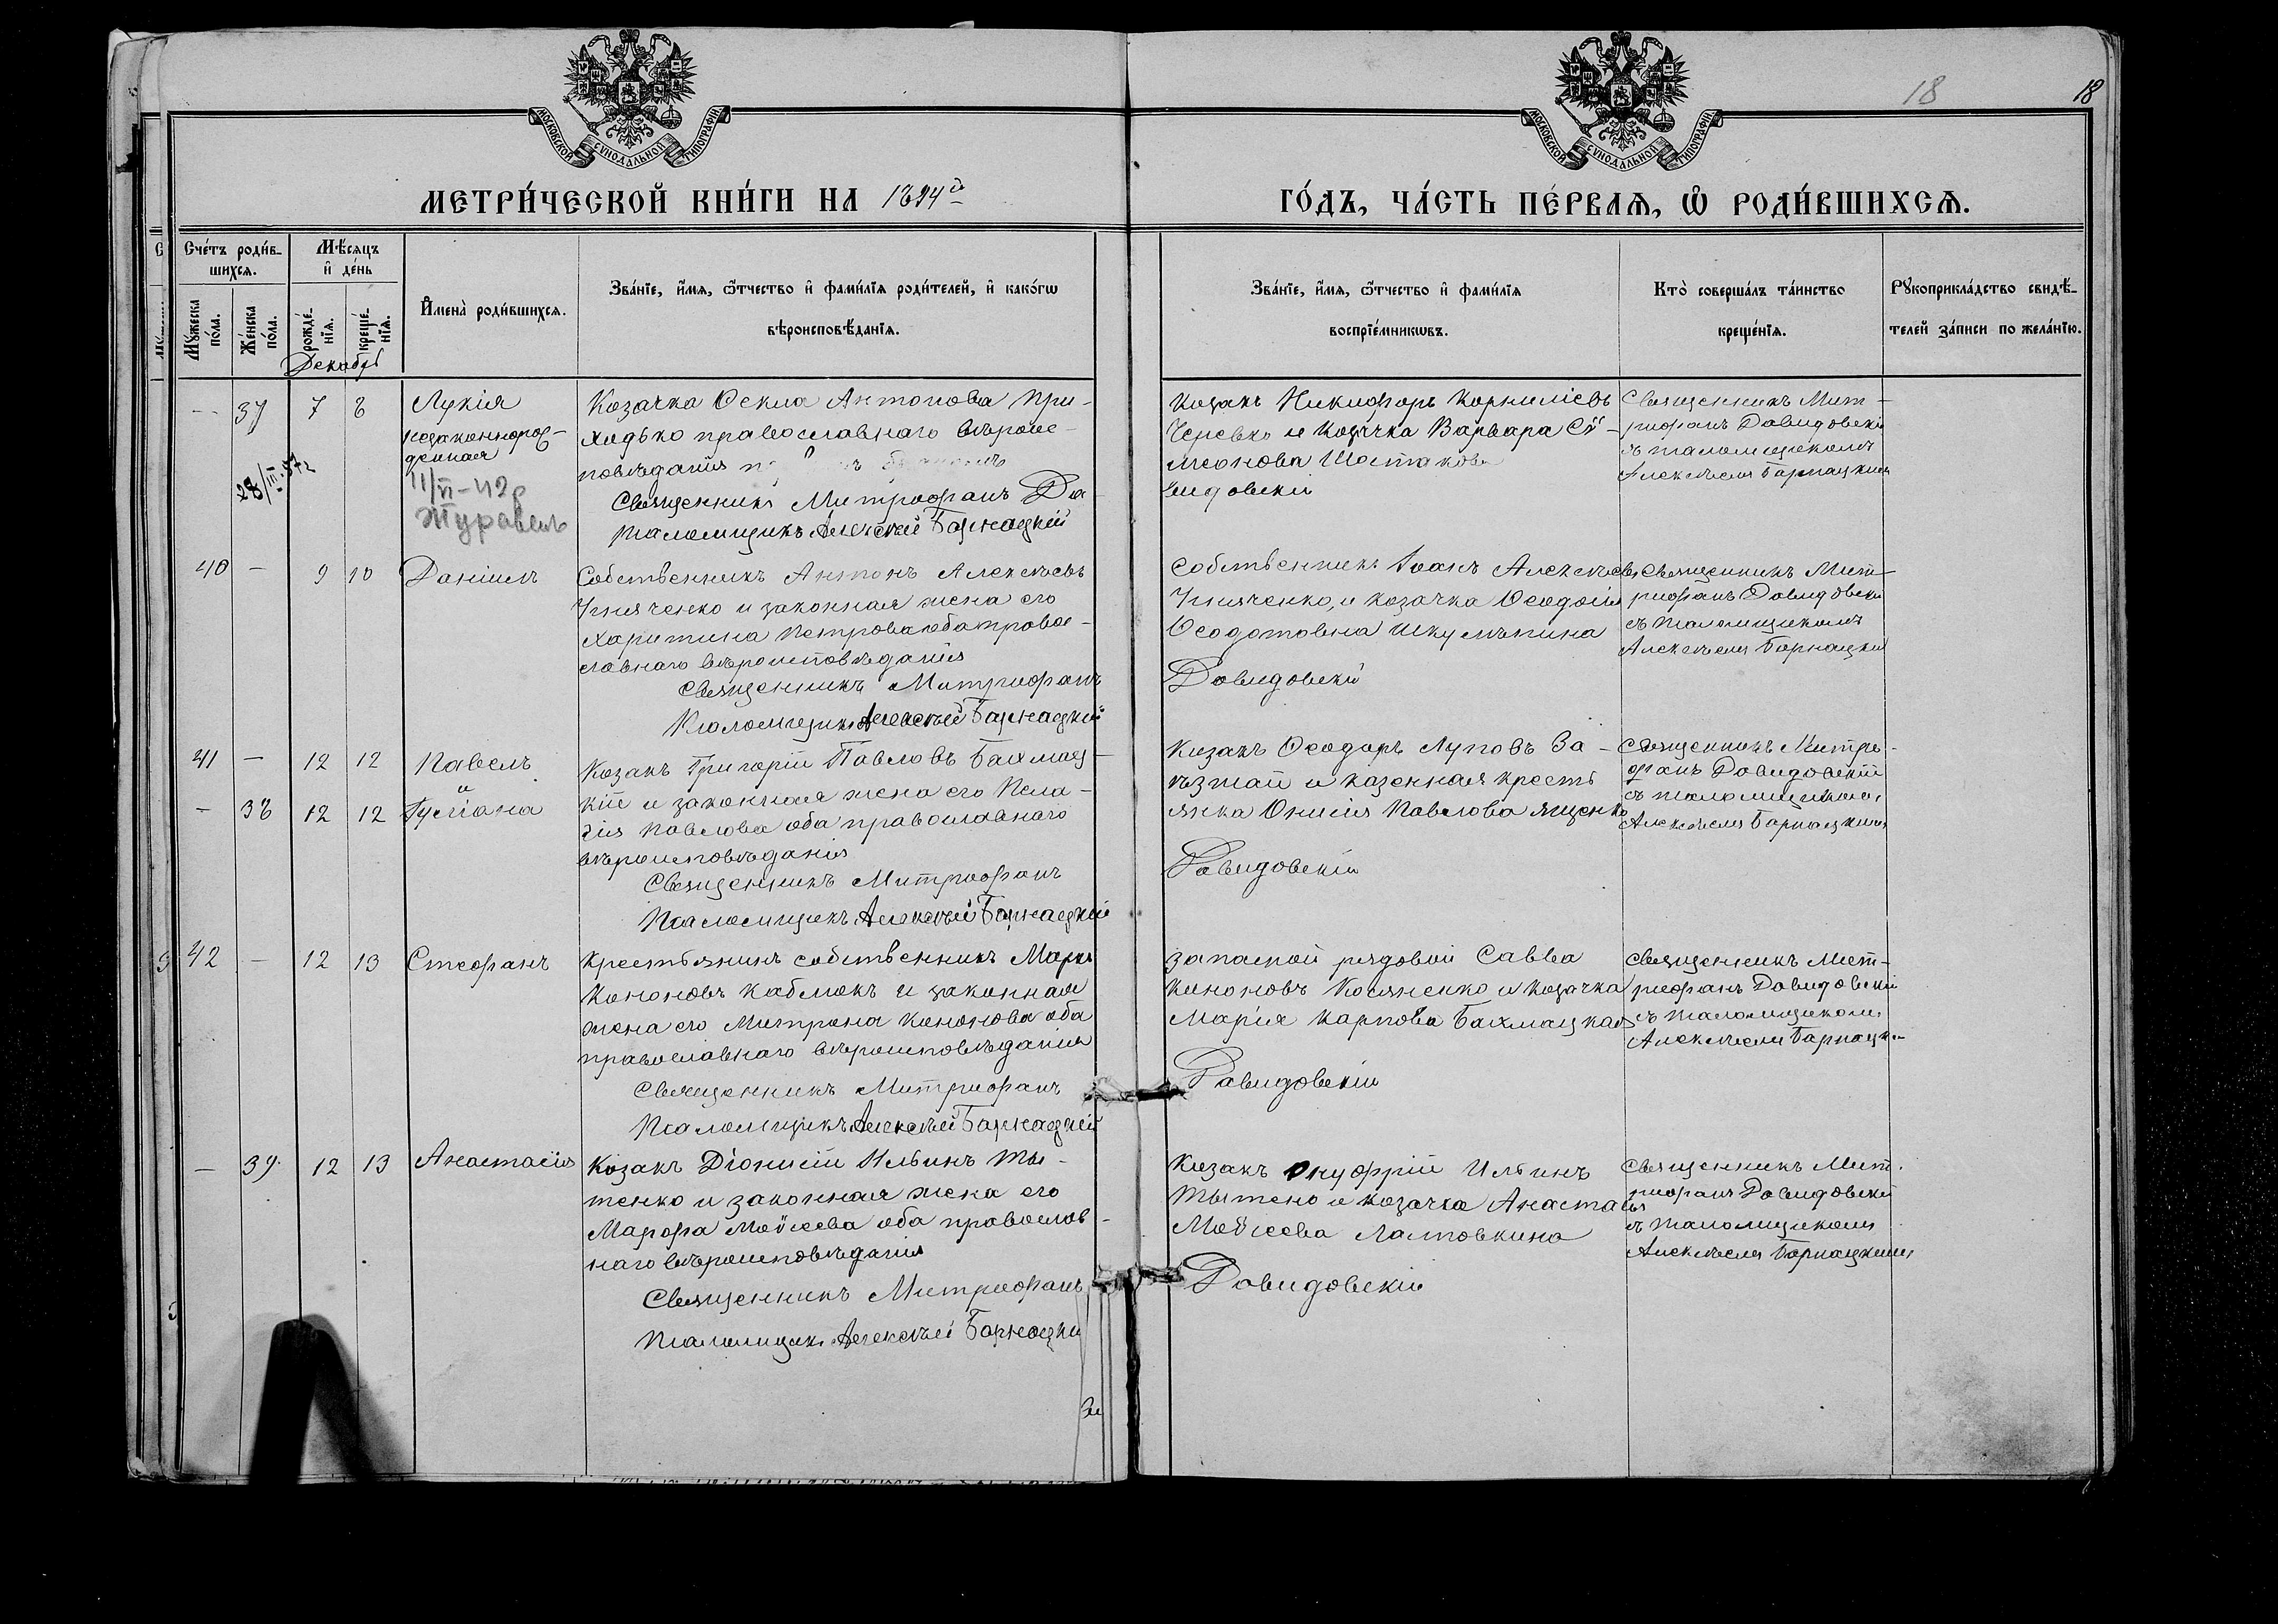 18
18
МОСКОВСКОЙ СѴНОДАЛЬНОЙ ТИПОГРАФІИ
МОСКОВСКОЙ СѴНОДАЛЬНОЙ ТИПОГРАФІИ
МЕТРИ́ЧЕСКОЙ КНИ́ГИ НА 1894й
ГО́ДЪ, ЧА́СТЬ ПЕ́РВАѦ, Ѡ҆ РОДИ́ВШИХСѦ.
Сче́тъ роди́в-
шихсѧ.
Мꙋ́жеска по́ла.
Же́нска по́ла.
Мѣ́сѧцъ
и҆ де́нь
рожде́-
нїѧ.
креще́-
нїѧ.
И҆мена̀ роди́вшихсѧ.
Зва́нїе, и҆́мѧ, ѻ҆́тчество и҆ фами́лїѧ роди́телей, и҆ како́гѡ
вѣроисповѣ́данїѧ.
Зва́нїе, и҆́мѧ, ѻ҆́тчество и҆ фами́лїѧ
воспрїе́мникѡвъ.
Кто̀ соверша́лъ та́инство
креще́нїѧ.
Рꙋкоприкла́дство свидѣ́-
телей за́писи по жела́нїю.
Декабрь
-- 37 7 8 Лукія
незаконнорож-
денная
28/III-57г
11/VI-42р
Журавель
Козачка Ѳекла Антонова При-
ходько православнаго вѣроис-
повѣданія
Священникъ Митрофанъ Да
Псаломщикъ Алексѣй Барнацкій
Козакъ Никифоръ Корниліевъ
Черевко и козачка Варвара Сѵ-
меонова Шостакова
видовскій
Священникъ Мит-
рофанъ Давидовскій
съ псаломщикомъ
Алексѣемъ Барнацкимъ
40 - 9 10 Даніилъ
Собственникъ Антонъ Алексѣевъ
Гнияченко и законная жена его
Харитина Петрова оба право-
славнаго вѣроисповѣданія
Священникъ Митрофанъ
Псаломщикъ Алексѣй Барнацкій
Собственникъ Іоанъ Алексѣевъ
Гнияченко, и козачка Ѳеодосія
Ѳеодотовна
Давидовскій
Священникъ Мит-
рофанъ Давидовскій
съ псаломщикомъ
Алексѣемъ Барнацкимъ
41 - 12 12 Павелъ
и
- 38 12 12 Іуліана
Козакъ Григорій Павловъ Бахмац-
кій и законная жена его Пела-
гія Павлова оба православнаго
вѣроисповѣданія
Священникъ Митрофанъ
Псаломщикъ Алексѣй Барнацкій
Козакъ Ѳеодоръ Луповъ За-
и казенная кресть
янка Онисія Павлова Ященко
Давидовскій
Священникъ Митро-
фанъ Давидовскій
съ псаломщикомъ
Алексѣемъ Барнацкимъ
42 - 12 13 Стефанъ
Крестьянинъ собственникъ Маркъ
Кононовъ Каблюкъ и законная
жена его Митрона Кононова оба
православнаго вѣроисповѣданія
Священникъ Митрофанъ
Псаломщикъ Алексѣй Барнацкій
Запасной рядовой Савва
Кононовъ Косяненко и козачка
Марія Карпова Бахмацкая
Давидовскій
Священникъ Мит-
рофанъ Давидовскій
съ псаломщикомъ
Алексѣемъ Барнацкимъ
- 39 12 13 Анастасія
Козакъ Діонисій Ильинъ Ты-
тенко и законная жена его
Марфа Моѵсеева оба православ-
наго вѣроисповѣданія
Священникъ Митрофанъ
Псаломщикъ Алексѣй Барнацкій
Козакъ Онуфрій Ильинъ
и козачка Анастасія
Моѵсеева Латовкина
Давидовскій
Священникъ Мит-
рофанъ Давидовскій
съ псаломщикомъ
Алексѣемъ Барнацкимъ